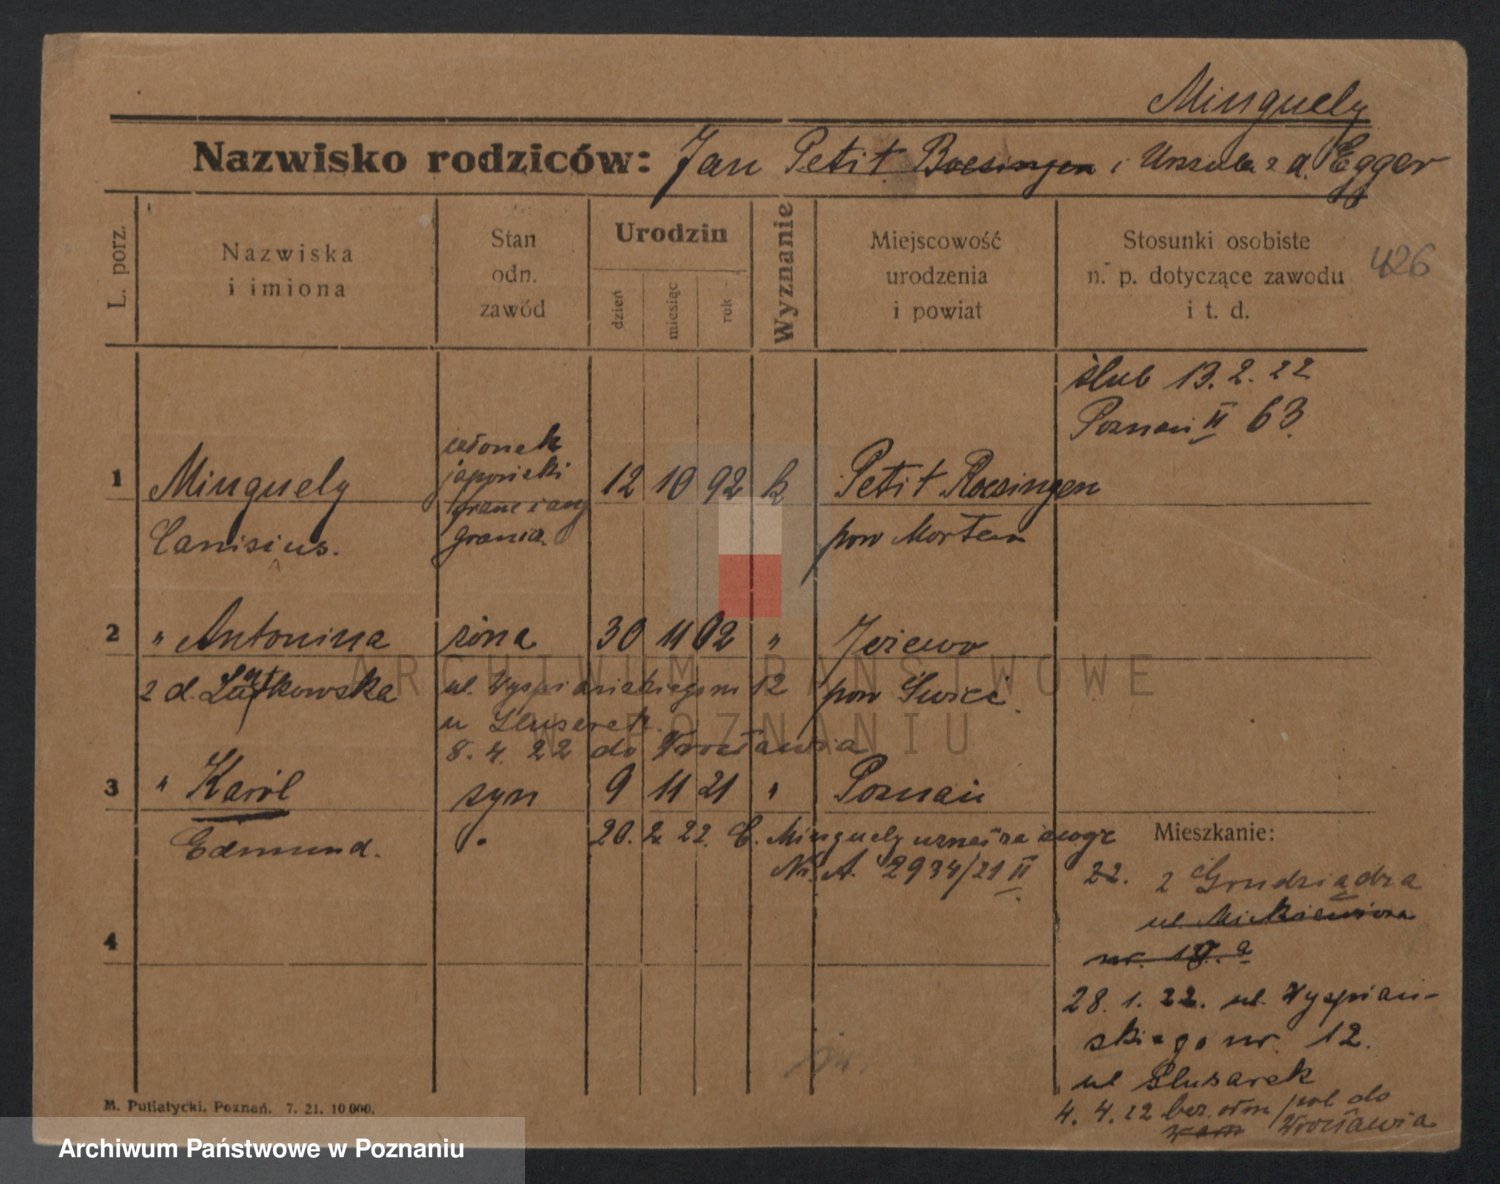 Minguely
Nazwisko rodziców: Jan Petit Boesingen i Urszula z d. Egger
L. porz.
Nazwiska
i imiona
Stan
odn.
zawód
Urodzin
dzień
miesiąc
rok
Wyznanie
Miejscowość
urodzenia
i powiat
Stosunki osobiste
n. p. dotyczące zawodu
i t. d.
426
ślub 13. 2. 22
Poznań II 63.
1 Minguely
Canisius.
członek
12 10 92 k
Petit Roesingen
pow
2 " Antonina
z d.
żona 30 11 02 " Jeżewo
pow Świeć
ul. Wyspiańskiego 12
u Slusarek.
8. 4. 22 do Wrocławia
3 " Karól
Edmund.
syn 9 11 21 " Poznań
20. 2. 22. C. Minguely
Nr. A. 2934/21 II
4
Mieszkanie:
22. z Grudziądza
ul. Mickiewicza
nr.
28. 1. 22. ul. Wyspiań-
skiego nr. 12.
ul Slusarek
4. 4. 22 do
Wrocławia
M. Putiatycki. Poznań. 7. 21. 10 000.
ARCHIWUM PAŃSTWOWE
W POZNANIU
Archiwum Państwowe w Poznaniu